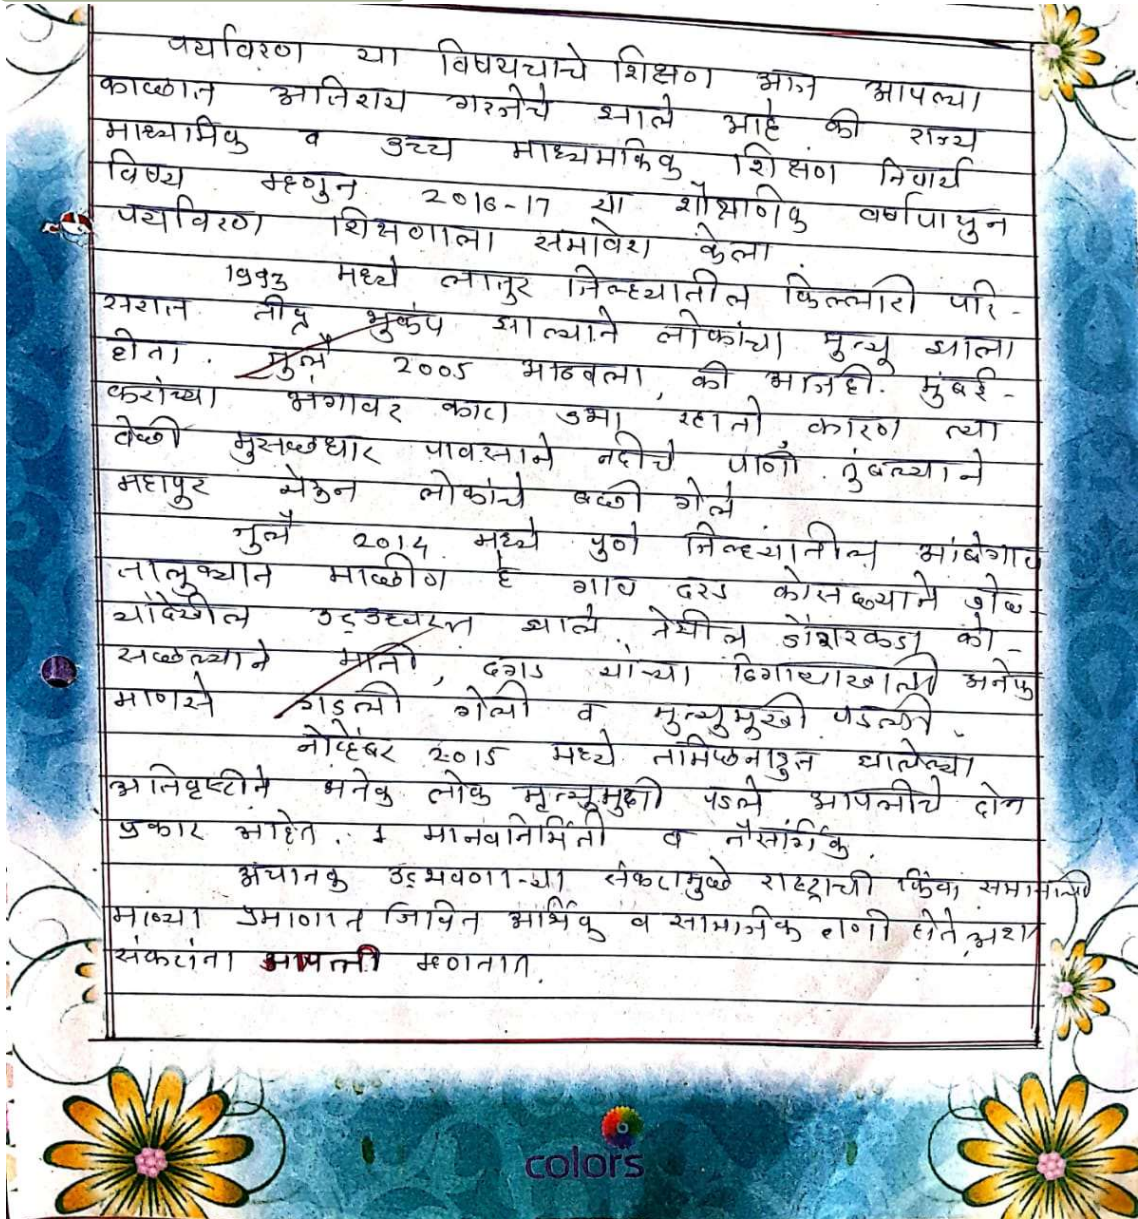 पर्यावरण या विषयचाचे शिक्षण आज आपल्या
काळात अतिशय गरजेचे झाले आहे की राज्य
माध्यामिक व उच्च माध्यमकिक शिक्षण निवार्य
विषय म्हणुन 2016-17 या शैक्षणिक वर्षापासुन
पर्यावरण शिक्षणाला समावेश केला
1993 मध्ये लातुर जिल्ह्यातील किल्लारी परि-
सरात तीव्र भुकंप झाल्याने लोकांचा मुत्यू झाला
होता. जुलै 2005 आठवला, की आजही मुंबई-
करांच्या अंगावर काटा उभा रहातो कारण त्या
वेळी मुसळधार पावसाने नदीचे पाणी तुंबल्याने
महापुर येऊन लोकांचे बळी गेले
जुलै 2014 मध्ये पुणे जिल्ह्यातील आंबेगाव
तालुक्यात माळीण हे गाव दरड कोसळ्याने शेळ-
यांदेखील उद्उध्वस्त झाले. तेथील डोंगरकडा को-
सळल्याने माती, दगड यांच्या ढिगाऱ्याखाली अनेक
माणसे गाडली गेली व मुत्युमुखी पडली.
नोव्हेंबर 2015 मध्ये तामिळनाडुत झालेल्या
अतिवृष्टीने अनेक लोक मृत्युमुखी पडले आपलीचे दोन
प्रकार आहेत. 1 मानवनिर्मिती व नैसर्गिक.
अचानक उद्भवणा-या संकटामुळे राष्ट्राची किंवा समाजाची
मोठ्या प्रमाणात जिवित आर्थिक व सामाजिक हाणी होते, अशा
संकटांना आपत्ती म्हणतात.
colors